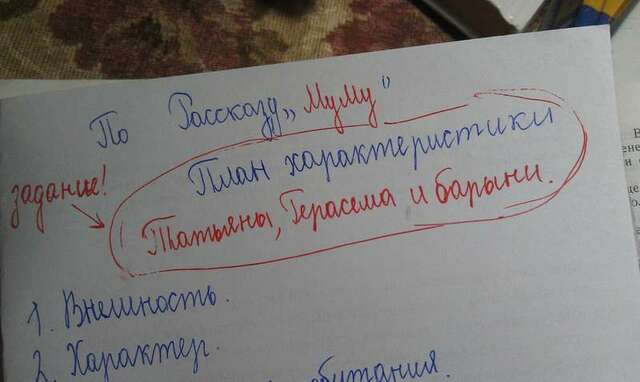 По Рассказу „Муму"
задание!
План характеристики
Татьяны, Герасима и барыни.
1. Внешность.
2. Характер.
обитания.